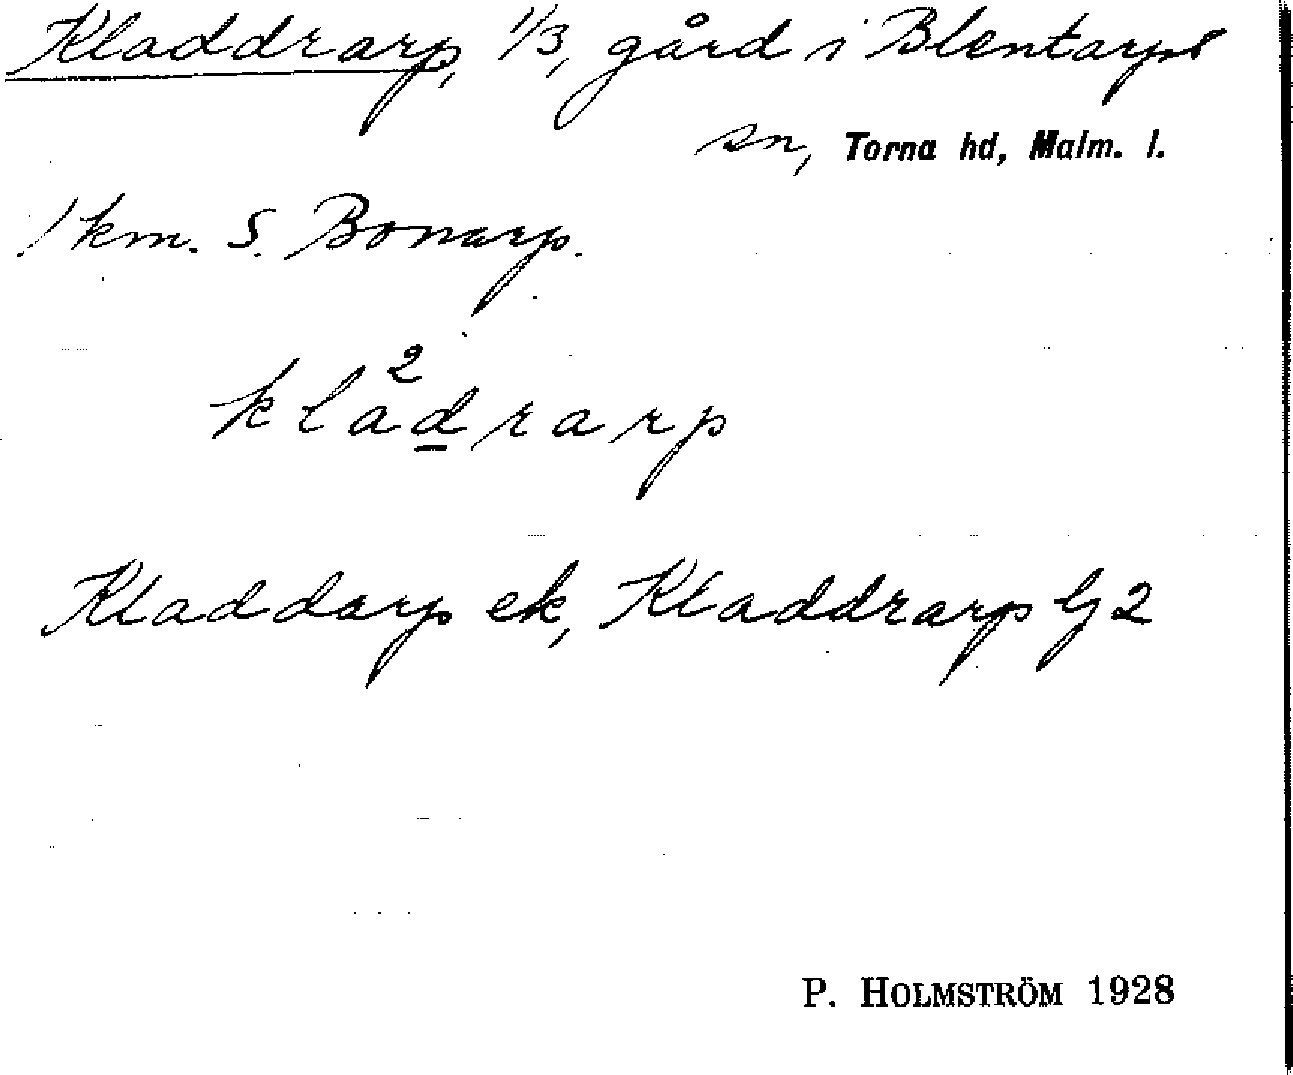 Kladdrarp, 1/3, gård i Blentarps
sn, Torna hd, Malm. l.
1 km. S. Bonarp.
klåd̲rarp
Kladdarp ek, Kladdrarp Gj 2
P. HOLMSTRÖM 1928